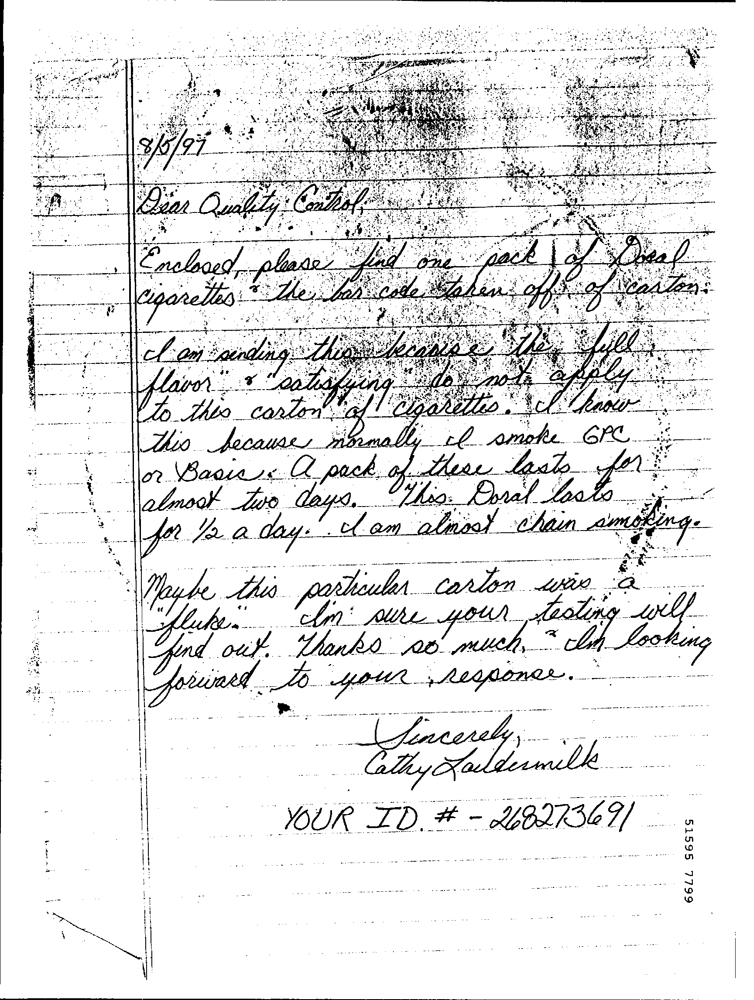 8/5/97
Dear Quality Control,
Enclosed, please find one pack of Doral
cigarettes & the bar code taken off of carton.
I am sending this because the "full
flavor" & "satisfying" do not apply
to this carton of cigarettes. I know
this because normally I smoke GPC
or Basic. A pack of these lasts for
almost two days. This Doral lasts
for 1/2 a day. I am almost chain smoking.
Maybe this particular carton was a
"fluke". I'm sure your testing will
find out. Thanks so much, & I'm looking
forward to your response.
Sincerely,
Cathy Laudermilk
YOUR ID. # - 268273691
51595 7799